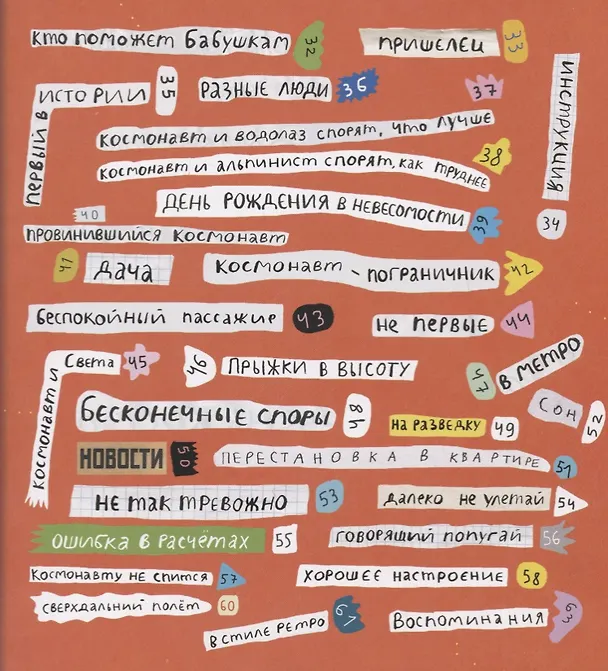 Кто поможет бабушкам 32
пришелец 33
первый в истории 35
разные люди 36
37
инструкция 34
космонавт и водолаз спорят, что лучше
космонавт и альпинист спорят, как труднее 38
день рождения в невесомости 39
40
провинившийся космонавт
41 дача
космонавт - пограничник 42
беспокойный пассажир 43
не первые 44
космонавт и Света 45
46 прыжки в высоту
47 в метро
бесконечные споры 48
на разведку 49
сон 52
НОВОСТИ 50
перестановка в квартире 51
не так тревожно 53
далеко не улетай 54
ошибка в расчётах 55
говорящий попугай 56
Космонавту не спится 57
хорошее настроение 58
сверхдальний полёт 60
в стиле ретро 61
Воспоминания 63